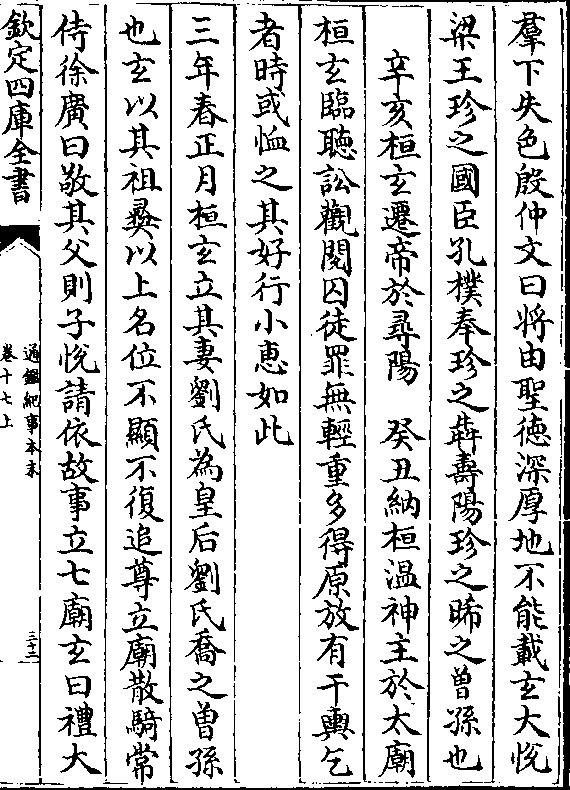 羣下失色殷仲文曰將由聖徳深厚地不能載玄大恱
梁王珍之國臣孔樸奉珍之犇壽陽珍之晞之曽孫也
辛亥桓玄遷帝於尋陽　癸丑納桓温神主於太廟
桓玄臨聽訟觀閱囚徒罪無輕重多得原放有干輿乞
者時或恤之其好行小恵如此
三年春正月桓玄立其妻劉氏為皇后劉氏喬之曽孫
也玄以其祖彛以上名位不顯不復追尊立廟散騎常
侍徐廣曰敬其父則子恱請依故事立七廟玄曰禮大
欽定四庫全書
通鑑紀事本末
卷十七上
三十二